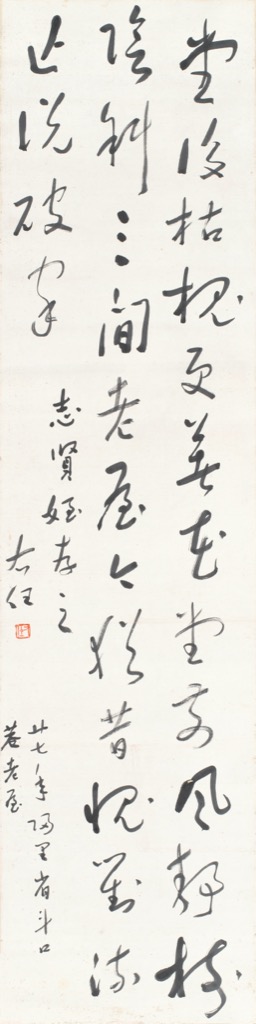 堂後枯槐更著花堂前風靜樹
陰斜三間老屋今猶昔愧對流
亡說破家
志賢姪存之
右任
廿七年歸里省斗口
巷老屋